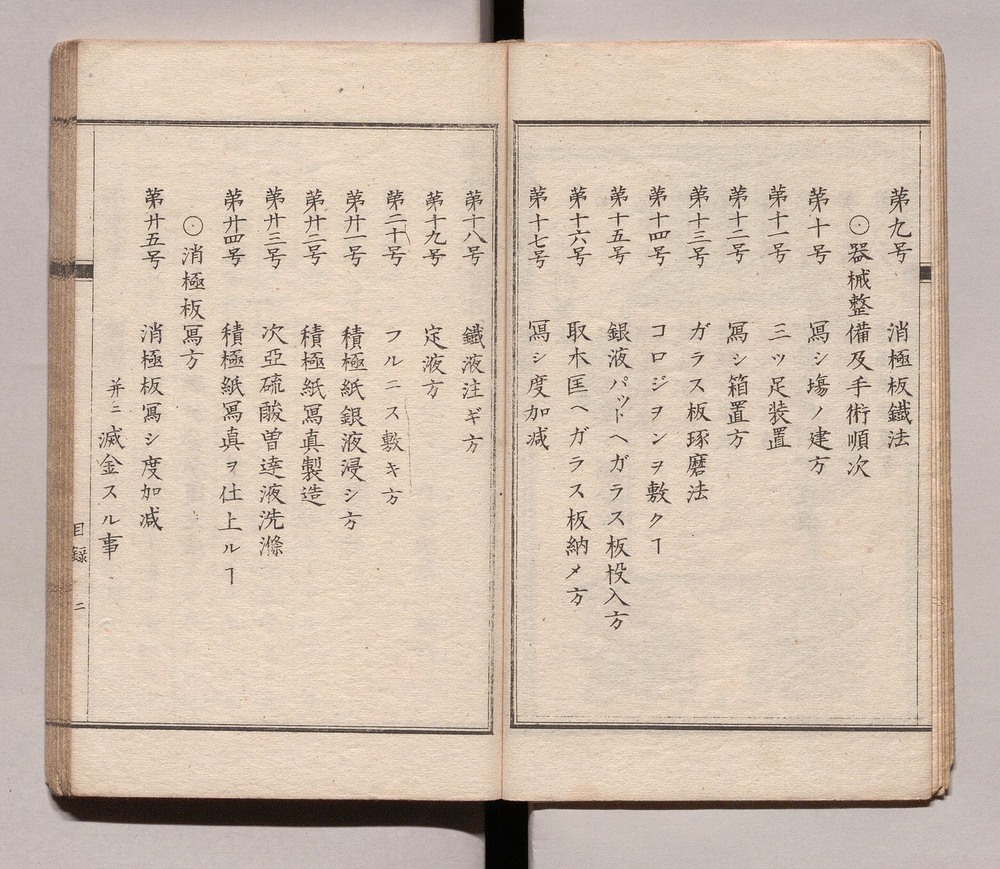 第九号 消極板鐵法
⦿器械整備及手術順次
第十号 冩シ塲ノ建方
第十一号 三ツ足装置
第十二号 冩シ箱置方
第十三号 ガラス板琢磨法
第十四号 コロジヲンヲ敷クヿ
第十五号 銀液パットヘガラス板投入方
第十六号 取木匡ヘガラス板納メ方
第十七号 冩シ度加减
第十八号 鐵液注ギ方
第十九号 定液方
第二十号 フルニス敷キ方
第廿一号 積極紙銀液浸シ方
第廿二号 積極紙冩真製造
第廿三号 次亞硫酸曽達液洗滌
第廿四号 積極紙冩真ヲ仕上ルヿ
⦿消極板冩方
第廿五号 消極板冩シ度加减
并ニ滅金スル事
目録 二